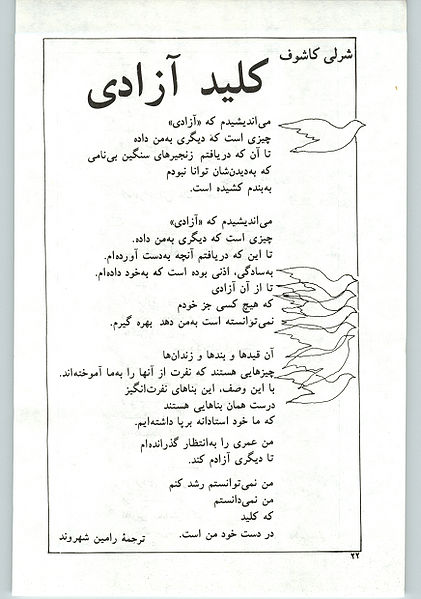 شرلی کاشوف
کلید آزادی
می‌اندیشیدم که «آزادی»
چیزی است که دیگری به‌من داده
تا آن که دریافتم زنجیرهای سنگین بی‌نامی
که به‌دیدن‌شان توانا نبودم
به‌بندم کشیده است.
می‌اندیشیدم که «آزادی»
چیزی است که دیگری به‌من داده.
تا این که دریافتم آنچه به‌دست آورده‌ام.
به‌سادگی، اذنی بوده است که به‌خود داده‌ام.
تا از آن آزادی
که هیچ کسی جز خودم
نمی‌توانسته است به‌من دهد بهره گیرم.
آن قیدها و بندها و زندان‌ها
چیزهایی هستند که نفرت از آنها را به‌ما آموخته‌اند.
با این وصف، این بناهای نفرت‌انگیز
درست همان بناهایی هستند
که ما خود استادانه برپا داشته‌ایم.
من عمری را به‌انتظار گذرانده‌ام
تا دیگری آزادم کند.
من نمی‌توانستم رشد کنم
من نمی‌دانستم
که کلید
در دست خود من است.
ترجمهٔ رامین شهروند
۲۲